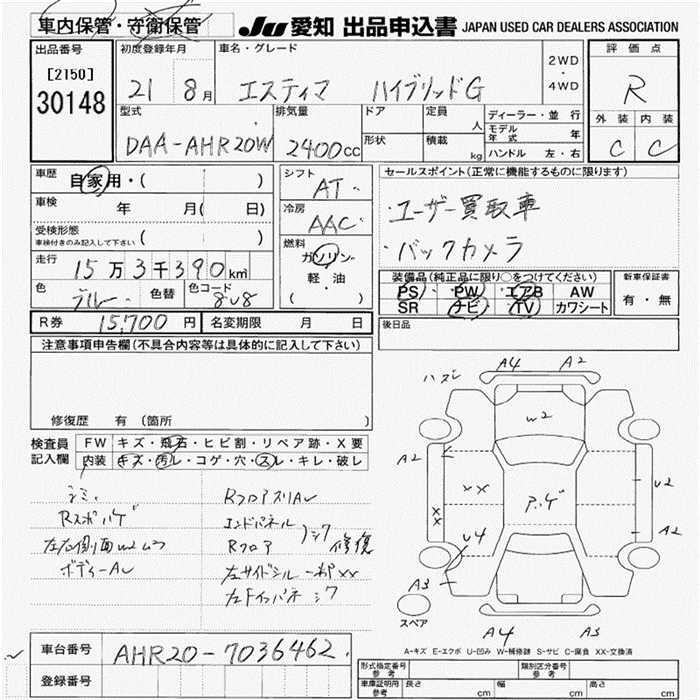 車内保管・守衛保管
JU 愛知 出品申込書 JAPAN USED CAR DEALERS ASSOCIATION
出品番号
[2150]
30148
初度登録年月
21 8月
車名・グレード
エスティマ ハイブリッドG
2WD
・
4WD
評価点
R
外装 内装
C C
型式
DAA-AHR20W
排気量
2400cc
ドア
形状
定員
人
積載
kg
ディーラー・並行
モデル年式 年
ハンドル 左・右
車歴
自家用・( )
車検
年 月( 日)
受検形態
車検付きのみ記入して下さい ( )
走行
15万3千390km
色
ブルー
色替
色コード
8V8
シフト
AT
冷房
AAC
燃料
ガソリン
軽・油
( )
セールスポイント(正常に機能するものに限ります)
・ユーザー買取車
・バックカメラ
装備品(純正品に限り○をつけてください)
PS PW エアB AW
SR ナビ TV カワシート
新車保証書
有・無
R券 15,700円
名変期限 月 日
後日品
注意事項申告欄(不具合内容等は具体的に記入して下さい)
修復歴 有 (箇所
検査員
記入欄
FW キズ・飛石・ヒビ割・リペア跡・X要
内装 キズ・汚レ・コゲ・穴・スレ・キレ・破レ
シミ
左右側面W2 ムラ
Rフロア
修復
左サイドシル
ハズレ
A4 A2
W2
A2
XX
XX
U2
A2
U4
A3
スペア
A4 A3
A-キズ E-エクボ U-凹み W-補修跡 S-サビ C-腐食 XX-交換済
車台番号
AHR20-7036462
登録番号
形式指定番号
参考
類別区分番号
参考
車庫証明用
参考
長さ cm 幅 cm 高さ cm